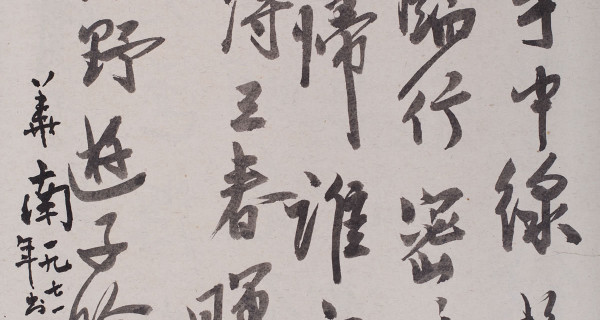 手中線
臨行密
歸誰
得三春暉
野遊子吟
華南
一九七一
年书